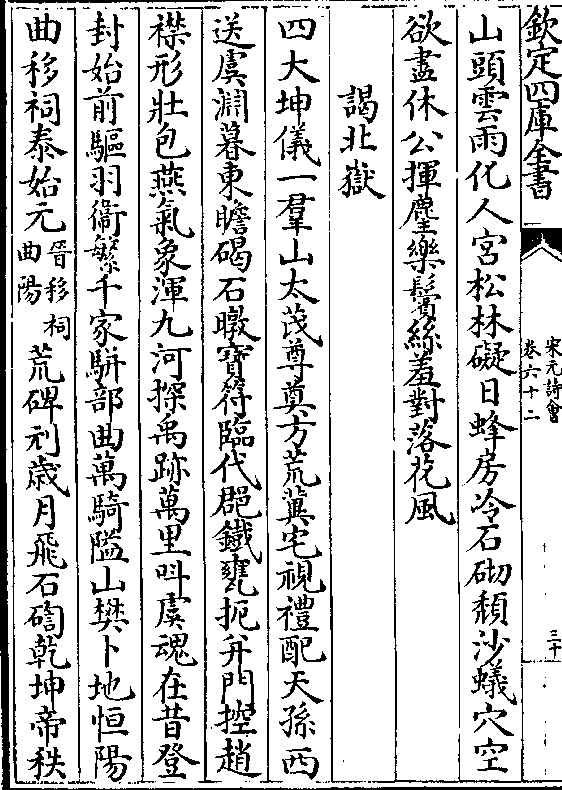 欽定四庫全書
宋元詩會
卷六十二
三十
山頭雲雨化人宮松林礙日蜂房冷石砌頹沙蟻穴空
欲盡休公揮麈樂鬢絲羞對落花風
謁北嶽
四大坤儀一羣山太茂尊奠方荒冀宅視禮配天孫西
送虞淵暮東瞻碣石暾寶符臨代郡鐵甕扼幷門控趙
襟形壯包燕氣象渾九河探禹跡萬里呌虞魂在昔登
封始前驅羽衞繁千家駢部曲萬騎隘山樊卜地恒陽
曲移祠泰始元晉移祠曲陽荒碑刓歲月飛石礄乾坤帝秩